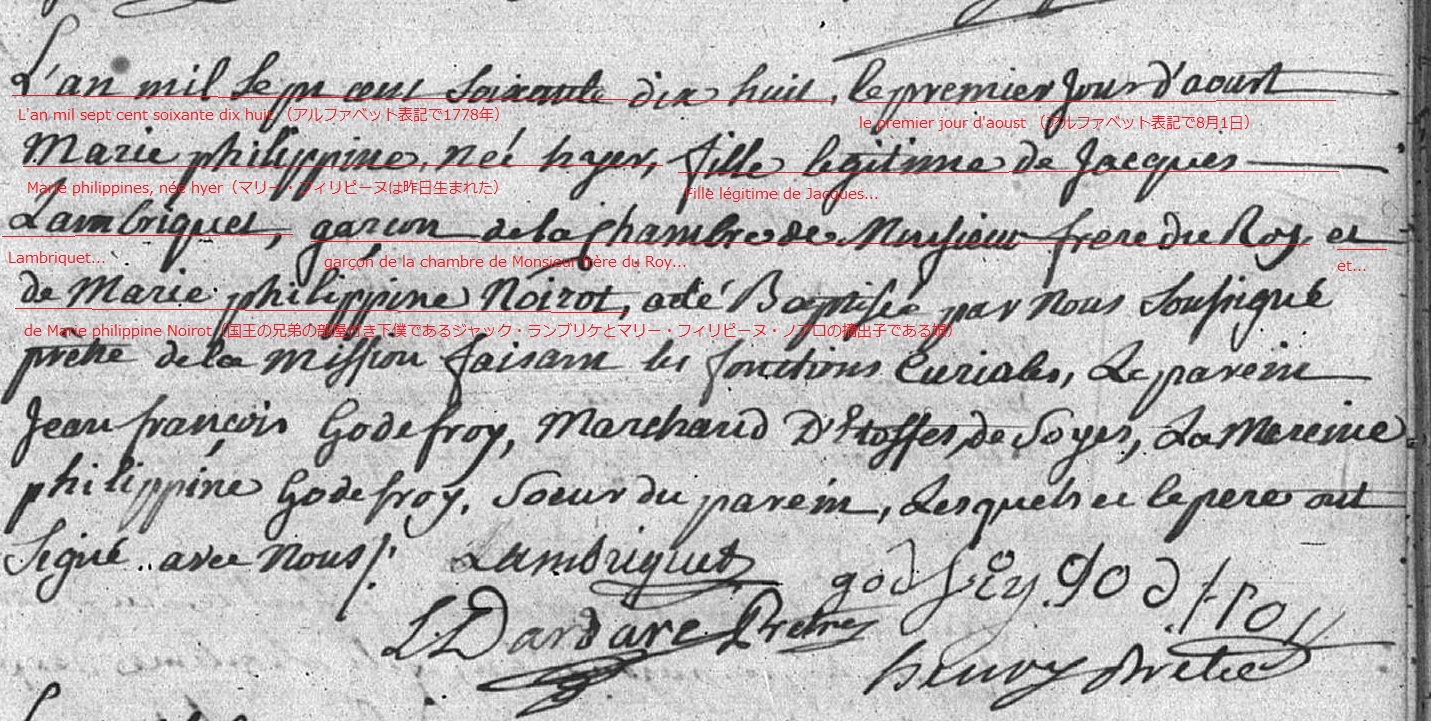 L'an mil Sept cent Soixante dix huit, le premier Jour d'aoust
L'an mil sept cent soixante dix huit （アルファベット表記で1778年）
le premier jour d'aoust （アルファベット表記で8月1日）
Marie philippine, née hyer, fille legitime de Jacques
Marie philippines, née hyer（マリー・フィリピーヌは昨日生まれた）
Fille légitime de Jacques...
Lambriquet, garcon de la Chambre de Monsieur frere du Roy et
Lambriquet...
garçon de la chambre de Monsieur frère du Roy...
et...
de Marie philippine Noirot, a été Baptisée par Nous Soussigné
de Marie philippine Noirot（国王の兄弟の部屋付き下僕であるジャック・ランブリケとマリー・フィリピーヌ・ノアロの摘出子である娘）
prêtre de la Mission faisant les fonctions Curiales, Le parein
Jean françois Godefroy, Marchand D'Etoffes de Soyes, La Mareine
philippine Godefroy, Soeur du parein, Lesquels et le pere ont
Signé avec Nous/.
Lambriquet
godefroy
L Dardare Pretre
henry Pretre